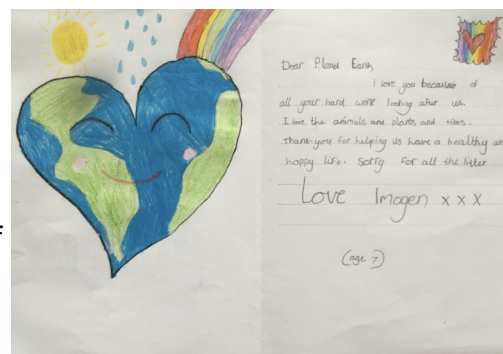 Dear Planet Earth,
I love you because of
all your hard work looking after us.
I love the animals and plants and trees.
Thankyou for helping us have a healthy an
happy life. Sorry for all the litter
Love Imogen x x x
(age 7)